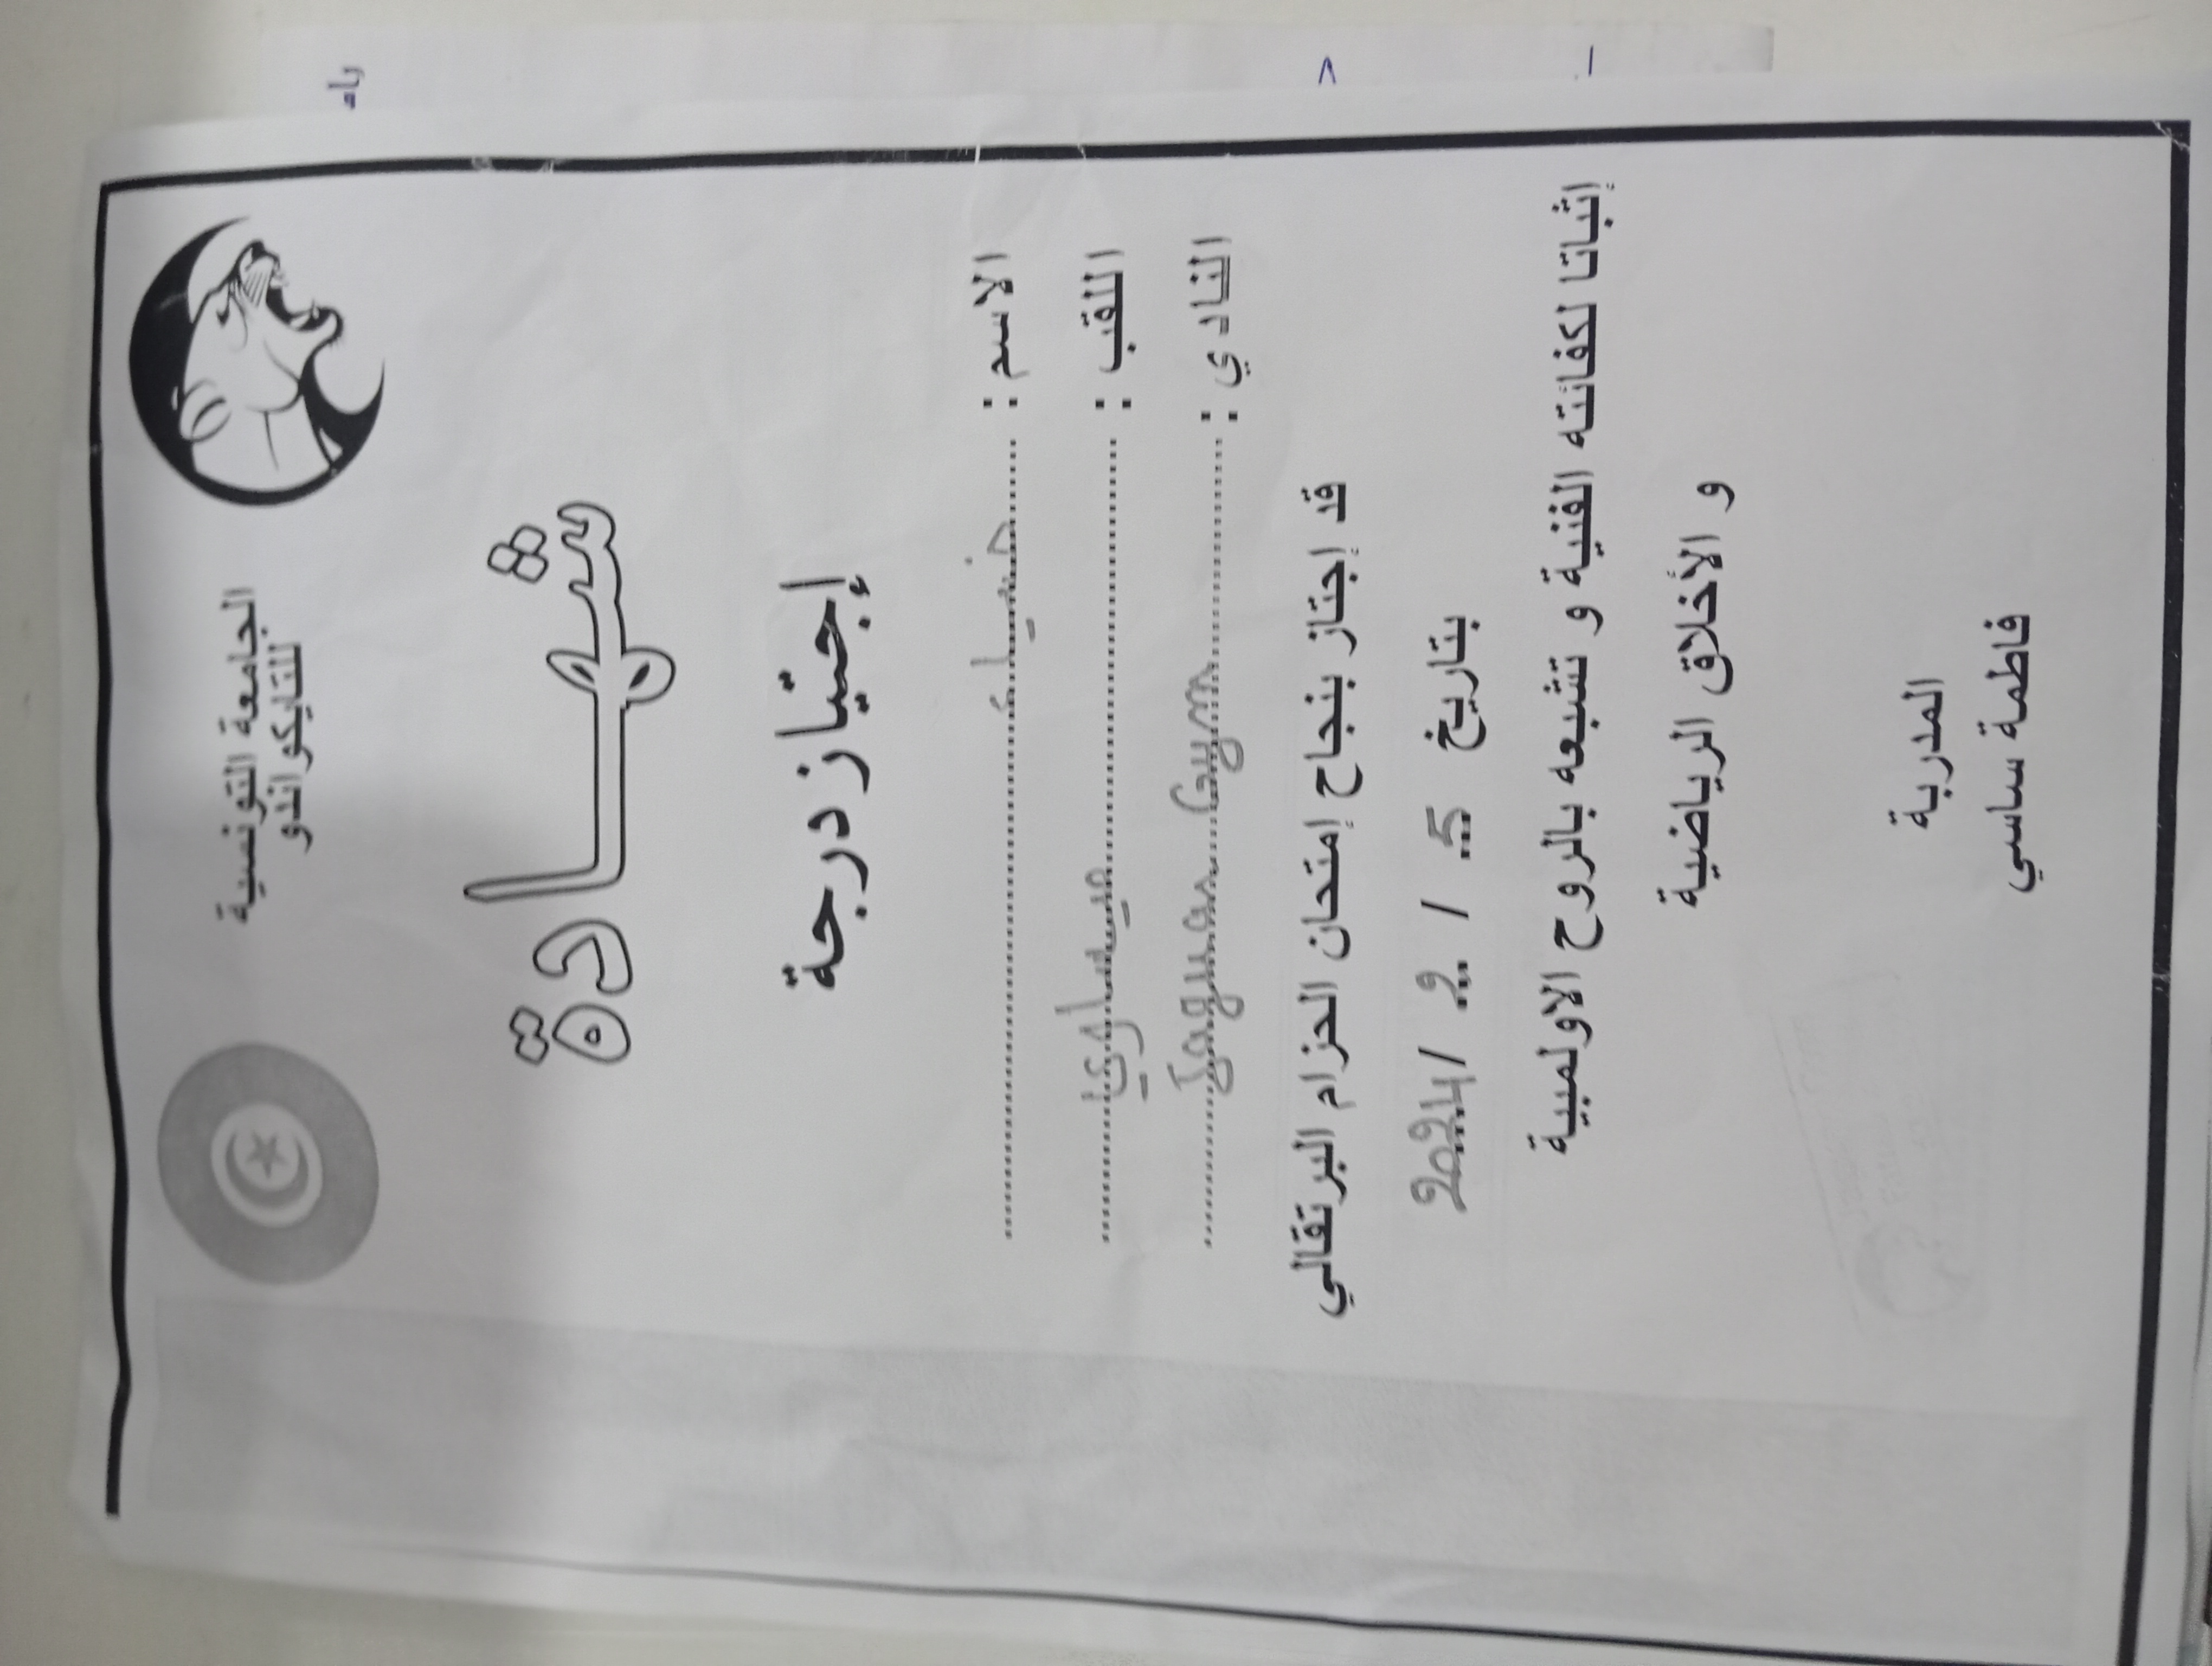 الجامعة التونسية
للتايكواندو
شهادة
إجتياز درجة
الاسم : ضياء
اللقب : عيساوي
النادي : Jaguar Gym
قد إجتاز بنجاح إمتحان الحزام البرتقالي
بتاريخ 5 / 2 / 2024
إثباتا لكفائته الفنية و تشبعه بالروح الاولمبية
و الأخلاق الرياضية
المدربة
فاطمة ساسي